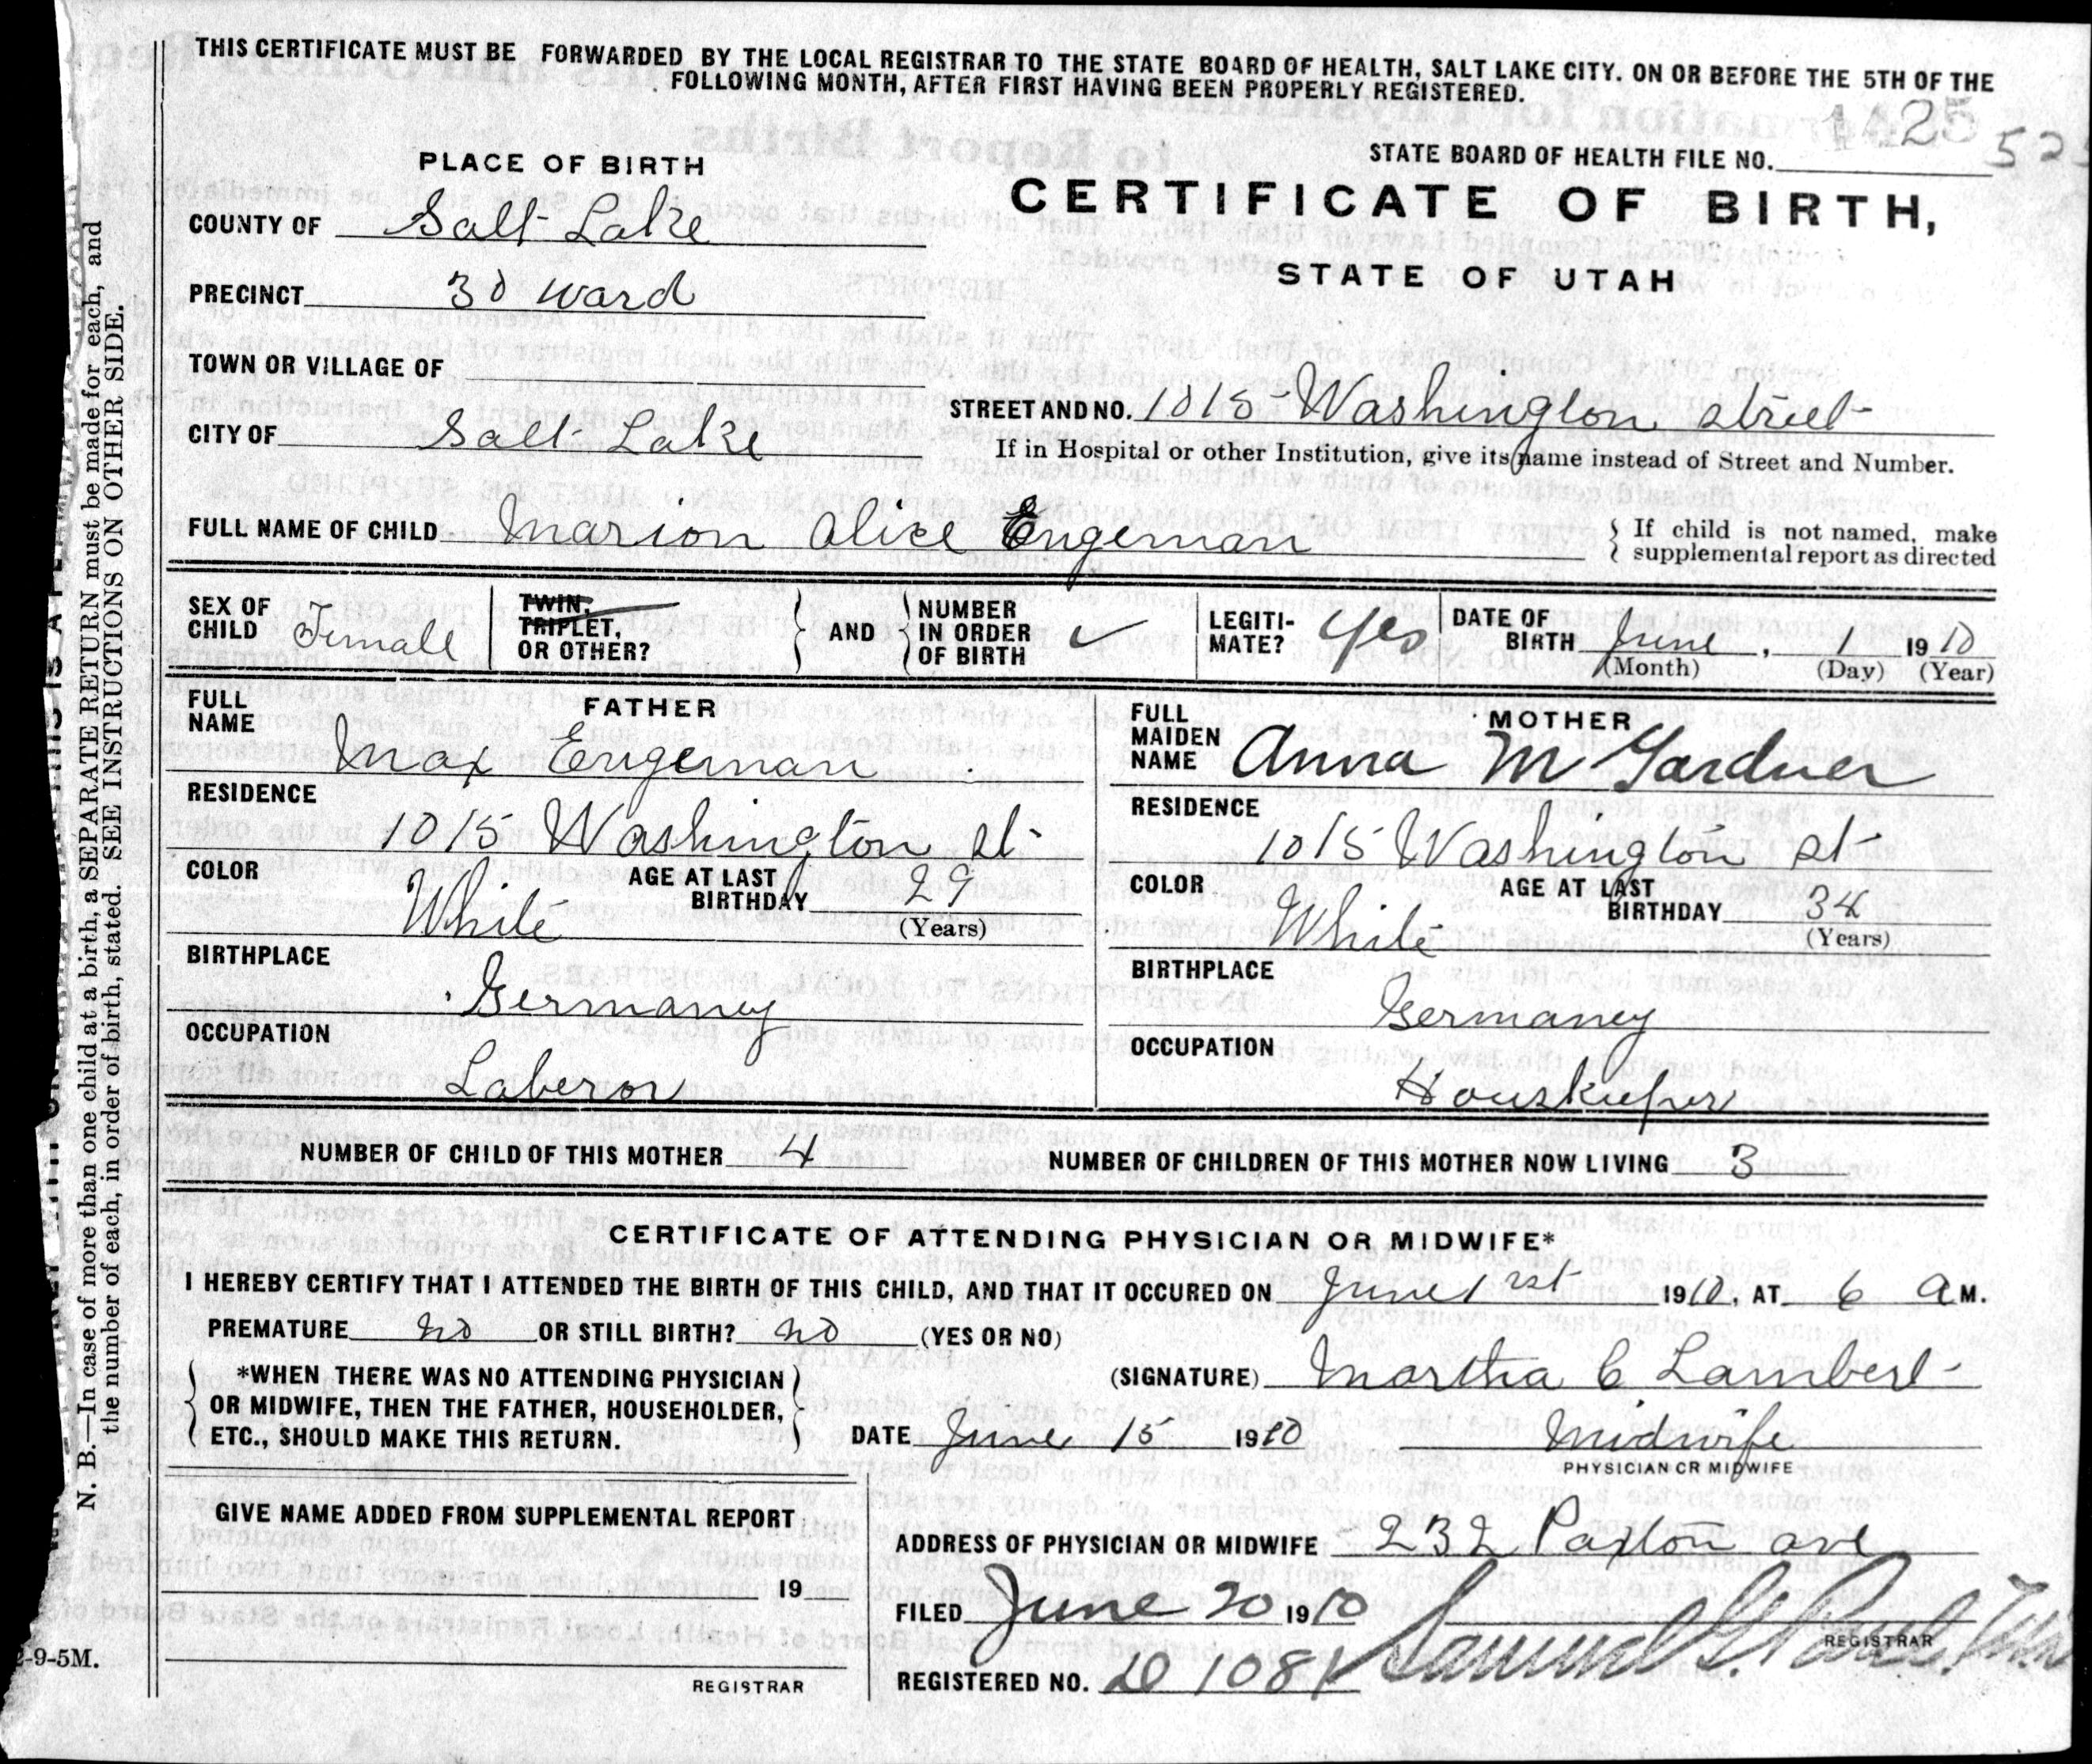 THIS CERTIFICATE MUST BE FORWARDED BY THE LOCAL REGISTRAR TO THE STATE BOARD OF HEALTH, SALT LAKE CITY. ON OR BEFORE THE 5TH OF THE
FOLLOWING MONTH, AFTER FIRST HAVING BEEN PROPERLY REGISTERED.
PLACE OF BIRTH
STATE BOARD OF HEALTH FILE NO. 1425
CERTIFICATE OF BIRTH,
STATE OF UTAH
COUNTY OF Salt Lake
PRECINCT 3d Ward
TOWN OR VILLAGE OF
CITY OF Salt Lake
STREET AND NO. 1015 Washington street
If in Hospital or other Institution, give its name instead of Street and Number.
FULL NAME OF CHILD Marion Alice Engeman
If child is not named, make
supplemental report as directed
SEX OF CHILD Female
TWIN, TRIPLET, OR OTHER?
AND
NUMBER IN ORDER OF BIRTH ✓
LEGITI-MATE? Yes
DATE OF BIRTH June, 1 1910
(Month) (Day) (Year)
FATHER
FULL NAME Max Engeman
RESIDENCE
1015 Washington st
COLOR White
AGE AT LAST BIRTHDAY 29
(Years)
BIRTHPLACE
Germaney
OCCUPATION
Laberor
MOTHER
FULL MAIDEN NAME Anna M Gardner
RESIDENCE
1015 Washington st
COLOR White
AGE AT LAST BIRTHDAY 34
(Years)
BIRTHPLACE
Germaney
OCCUPATION
Houskeeper
NUMBER OF CHILD OF THIS MOTHER 4
NUMBER OF CHILDREN OF THIS MOTHER NOW LIVING 3
CERTIFICATE OF ATTENDING PHYSICIAN OR MIDWIFE*
I HEREBY CERTIFY THAT I ATTENDED THE BIRTH OF THIS CHILD, AND THAT IT OCCURED ON June 1rst 1910, AT 6 A M.
PREMATURE no OR STILL BIRTH? no (YES OR NO)
*WHEN THERE WAS NO ATTENDING PHYSICIAN
OR MIDWIFE, THEN THE FATHER, HOUSEHOLDER,
ETC., SHOULD MAKE THIS RETURN.
(SIGNATURE) Martha C Lambert
DATE June 15 1910
Midwife
PHYSICIAN OR MIDWIFE
GIVE NAME ADDED FROM SUPPLEMENTAL REPORT
19
REGISTRAR
ADDRESS OF PHYSICIAN OR MIDWIFE 232 Paxton ave
FILED June 20 1910
Samuel G. Paul
REGISTRAR
REGISTERED NO. D 1081
-9-5M.
N. B.—In case of more than one child at a birth, a SEPARATE RETURN must be made for each, and
the number of each, in order of birth, stated. SEE INSTRUCTIONS ON OTHER SIDE.